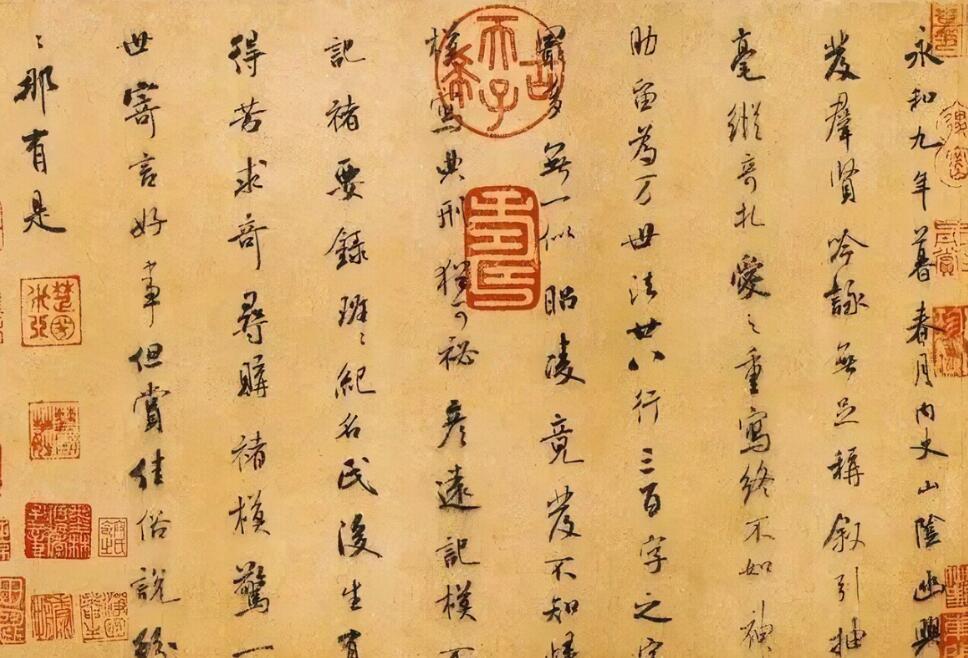 永和九年暮春月内史山陰幽興
發羣賢吟詠無足稱叙引抽
毫縱奇札愛々重寫終不如神
助留為万世法廿八行三百字之字
最多無一似昭陵竟發不知歸
模寫典刑猶可秘彦遠記模不
記褚要録班々紀名氏後生有
得苦求奇尋購褚模驚一
世寄言好事但賞佳俗説紛
々那有是
古希天子